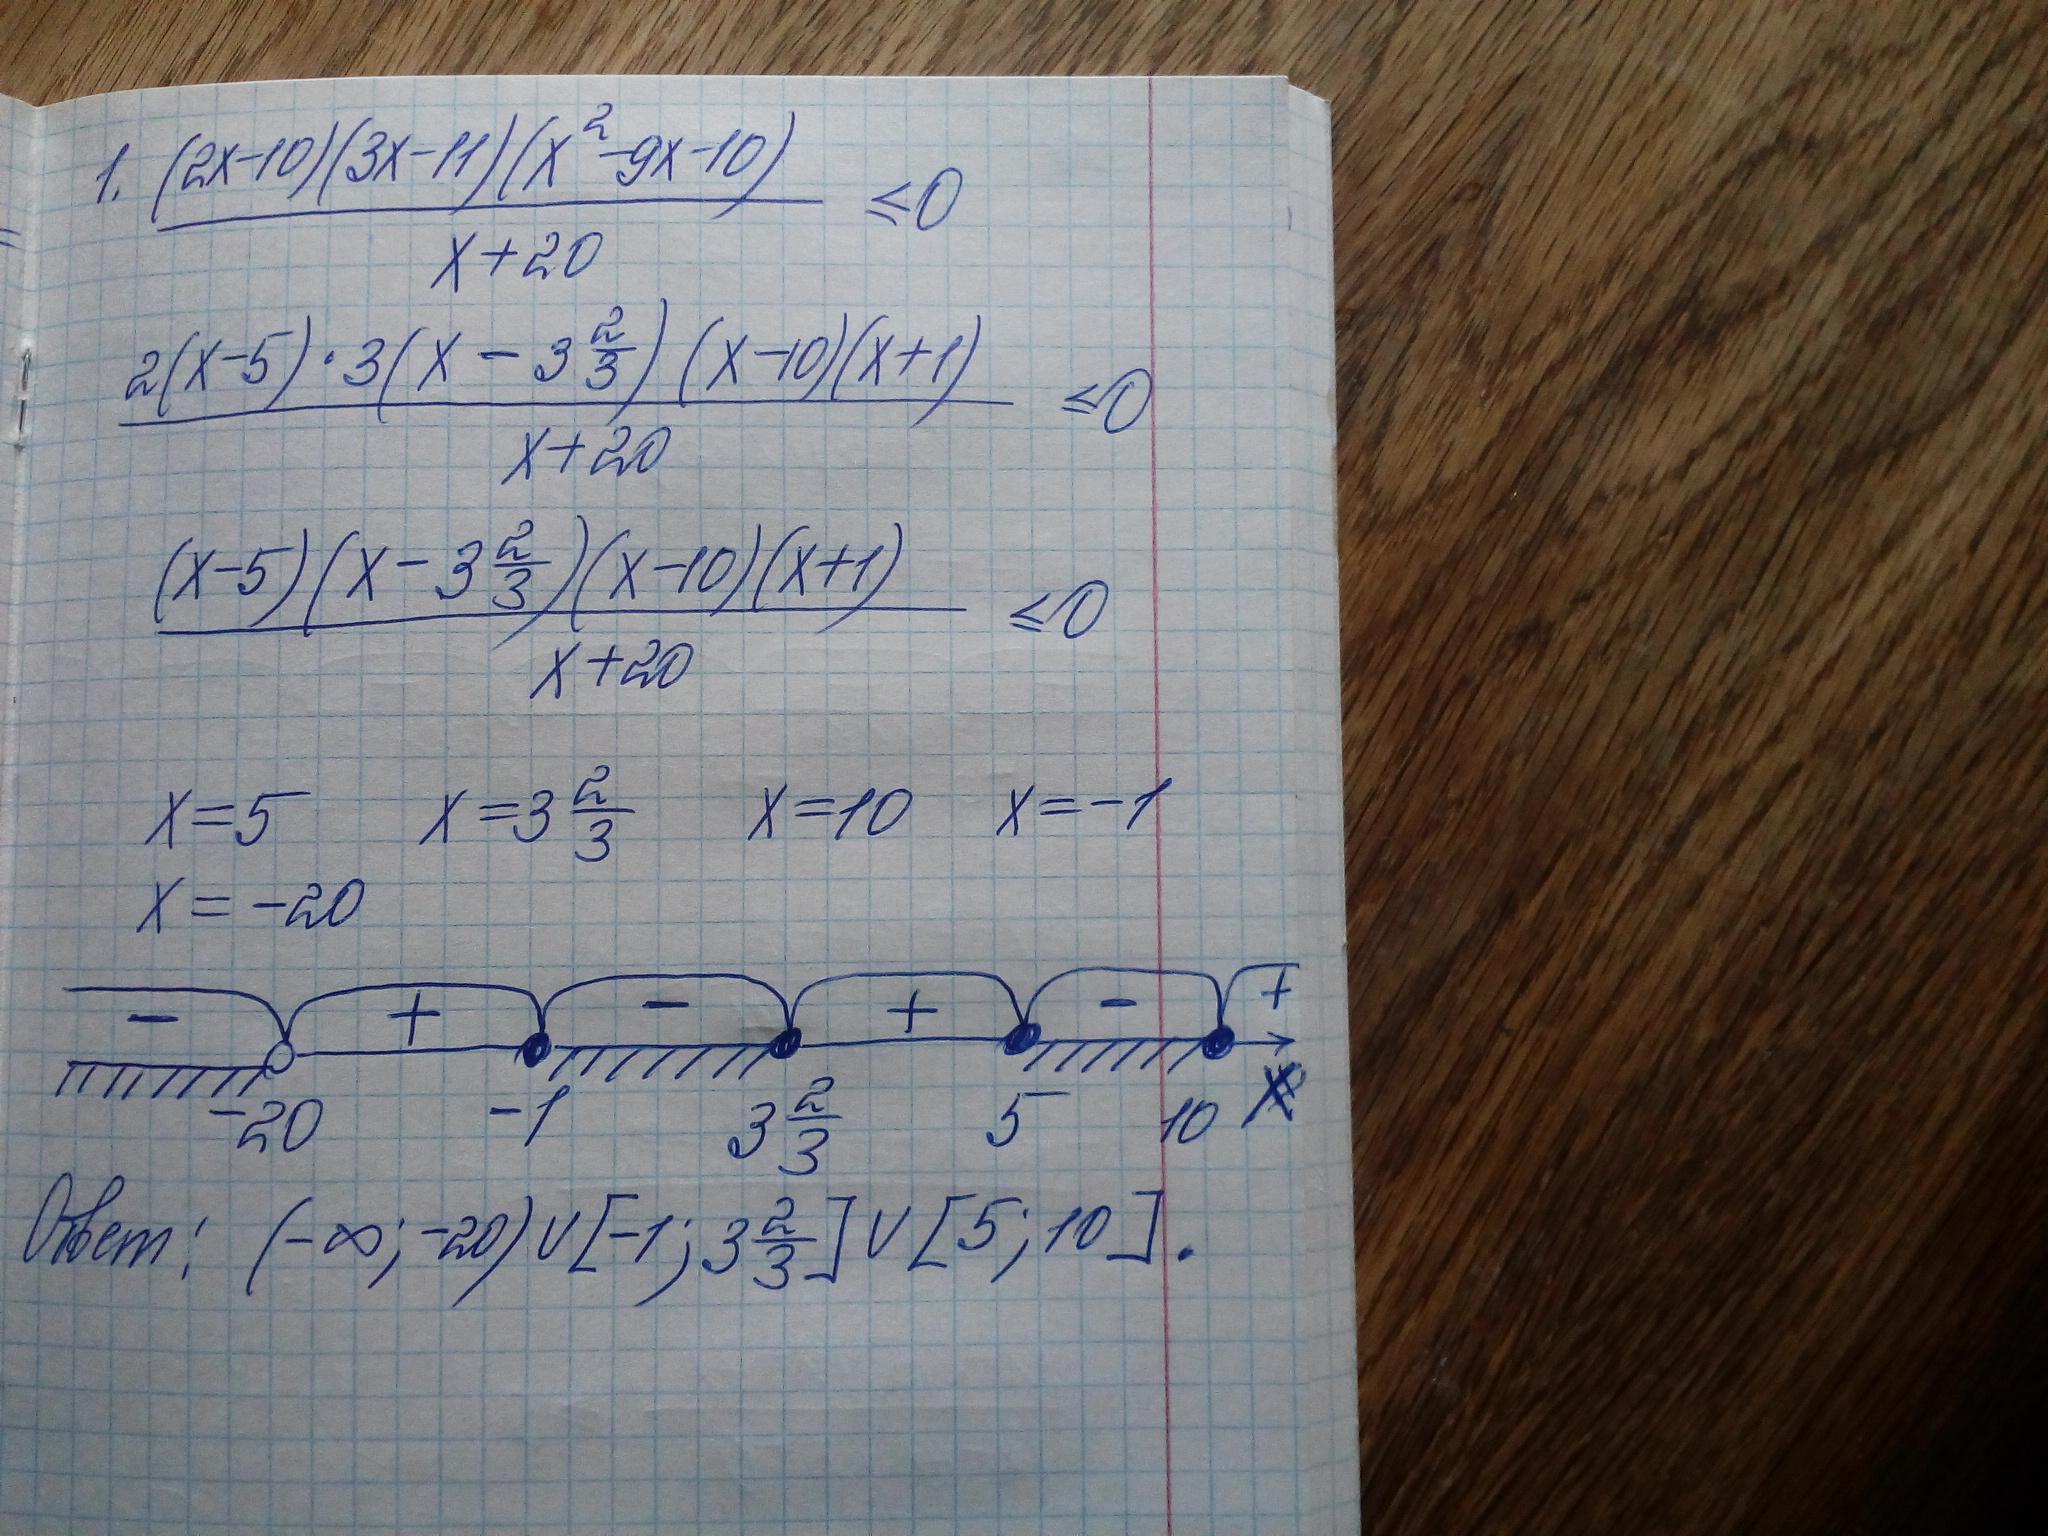 1. (2x-10)(3x-11)(x²-9x-10) / x+20 ≤0
2(x-5)·3(x-3 2/3)(x-10)(x+1) / x+20 ≤0
(x-5)(x-3 2/3)(x-10)(x+1) / x+20 ≤0
x=5 x=3 2/3 x=10 x=-1
x=-20
- + - + - +
-20 -1 3 2/3 5 10 x
Ответ: (-∞;-20)∪[-1;3 2/3]∪[5;10].